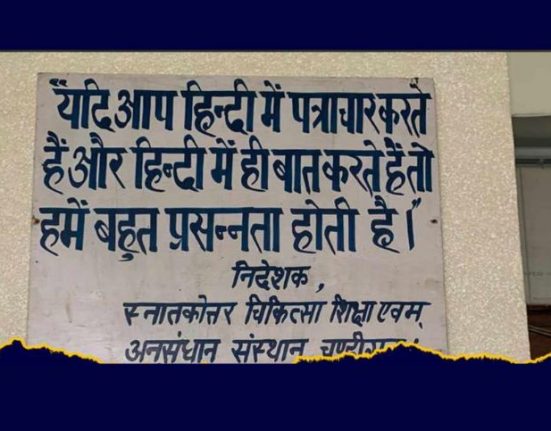 "यदि आप हिन्दी में पत्राचार करते
हैं और हिन्दी में ही बात करते हैं तो
हमें बहुत प्रसन्नता होती है।"
निदेशक,
स्नातकोत्तर चिकित्सा शिक्षा एवम्
अनसंधान संस्थान